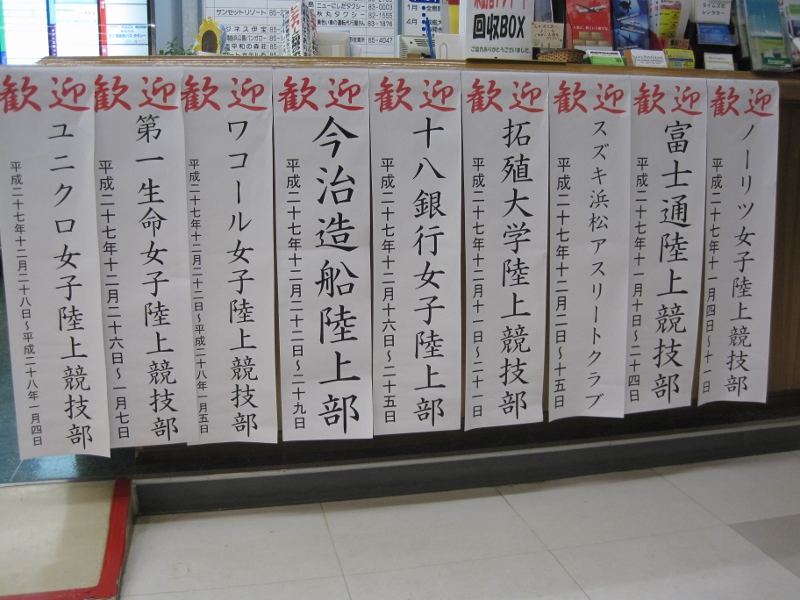 回収BOX
ご協力ありがとうございました
サンセットリゾート
85-4047
83-0003
82-1555
83-1876
歓迎
ノーリツ女子陸上競技部
平成二十七年十一月四日～十一日
歓迎
富士通陸上競技部
平成二十七年十一月十日～二十四日
歓迎
スズキ浜松アスリートクラブ
平成二十七年十二月二日～十五日
歓迎
拓殖大学陸上競技部
平成二十七年十二月十一日～二十一日
歓迎
十八銀行女子陸上部
平成二十七年十二月十六日～二十五日
歓迎
今治造船陸上部
平成二十七年十二月二十二日～二十九日
歓迎
ワコール女子陸上競技部
平成二十七年十二月二十二日～平成二十八年一月五日
歓迎
第一生命女子陸上競技部
平成二十七年十二月二十六日～一月七日
歓迎
ユニクロ女子陸上競技部
平成二十七年十二月二十八日～平成二十八年一月四日